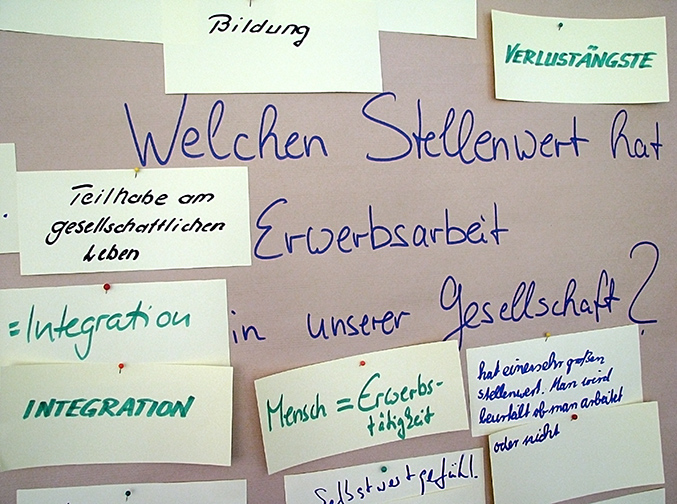 Bildung
VERLUSTÄNGSTE
Welchen Stellenwert hat
Erwerbsarbeit
in unserer Gesellschaft?
Teilhabe am
gesellschaftlichen
Leben
=Integration
INTEGRATION
Mensch = Erwerbs-
tätigkeit
hat einen sehr großen
stellenwert. Man wird
beurteilt ob man arbeitet
oder nicht
Selbstwertgefühl.